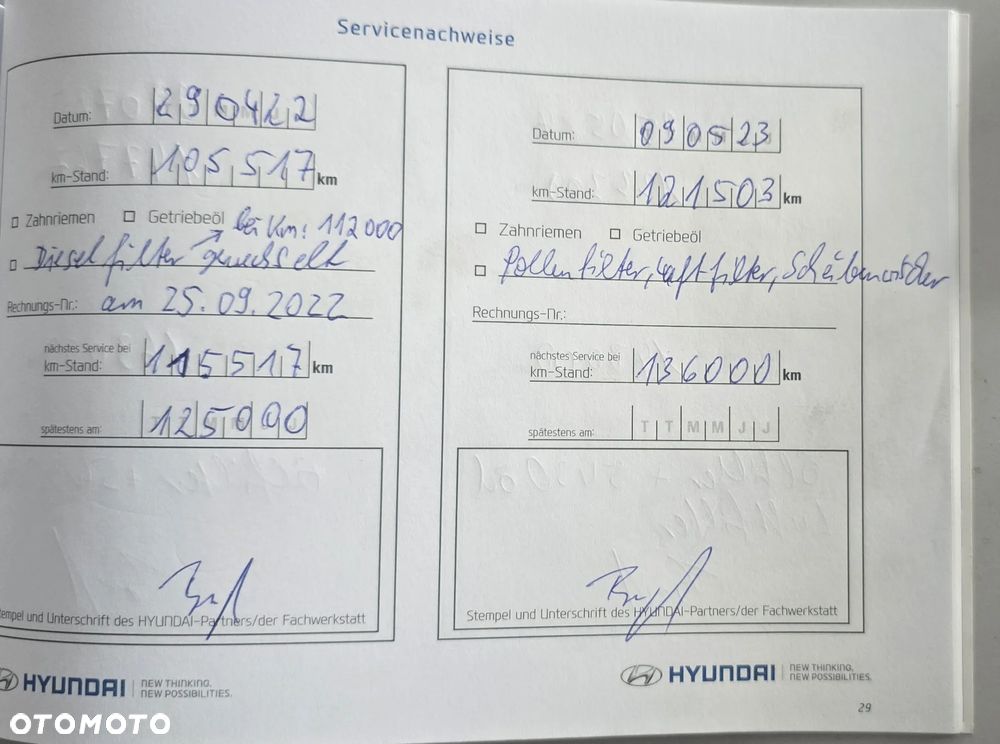 Servicenachweise
Datum: 290422
km-Stand: 105517 km
Zahnriemen Getriebeöl bei Km: 112000
Dieselfilter gewechselt
Rechnungs-Nr.: am 25.09.2022
nächstes Service bei
km-Stand: 115517 km
spätestens am: 125000
Stempel und Unterschrift des HYUNDAI-Partners/der Fachwerkstatt
HYUNDAI NEW THINKING.
NEW POSSIBILITIES.
Datum: 090523
km-Stand: 121503 km
Zahnriemen Getriebeöl
Pollenfilter, Luftfilter, Scheibenwischer
Rechnungs-Nr.:
nächstes Service bei
km-Stand: 136000 km
spätestens am: T T M M J J
Stempel und Unterschrift des HYUNDAI-Partners/der Fachwerkstatt
HYUNDAI NEW THINKING.
NEW POSSIBILITIES.
29
OTOMOTO